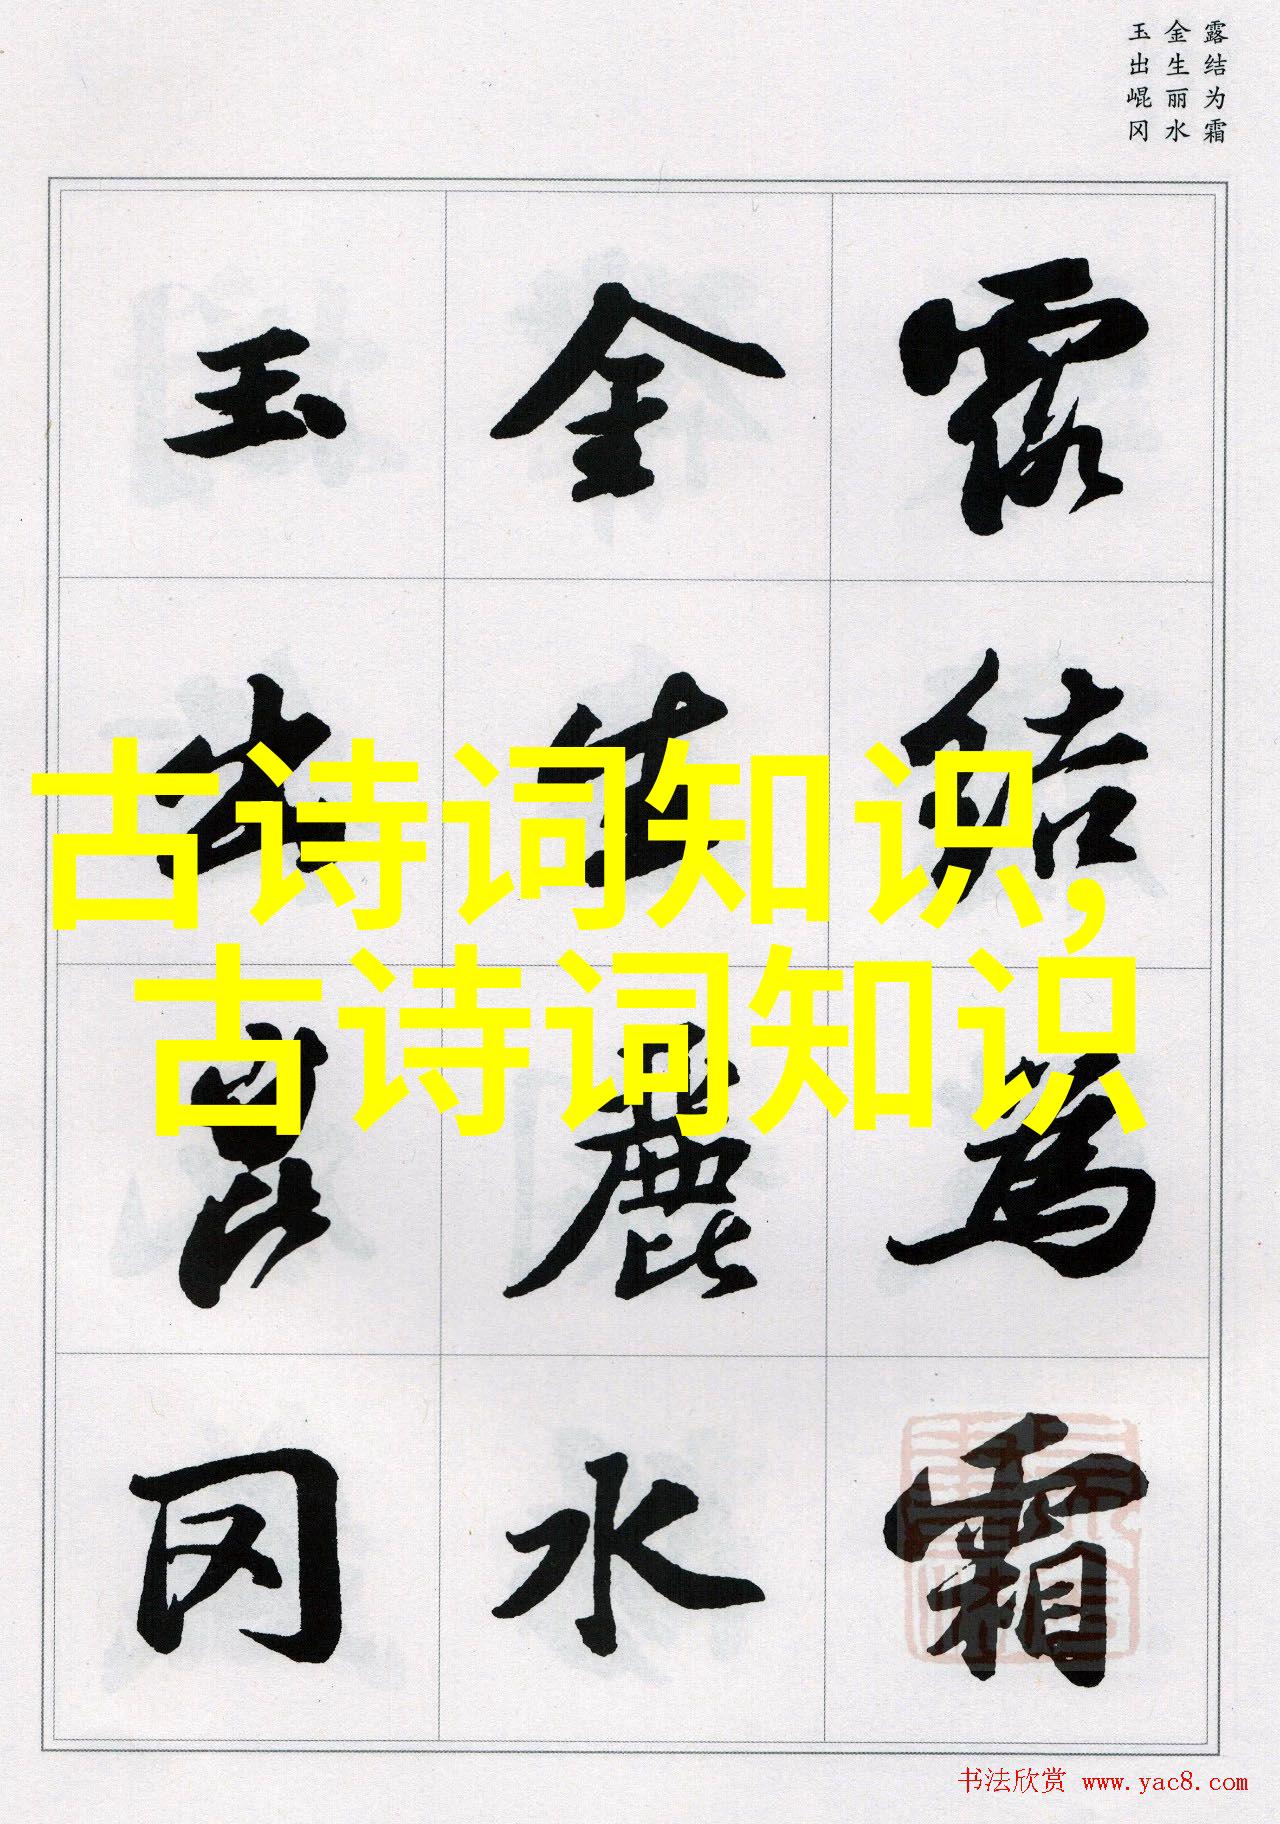 露结为霜
金生丽水
玉出崐冈
露結為霜
金生麗水
玉出崑冈
古诗词知识,
古诗词知识
书法欣赏 www.yac8.com